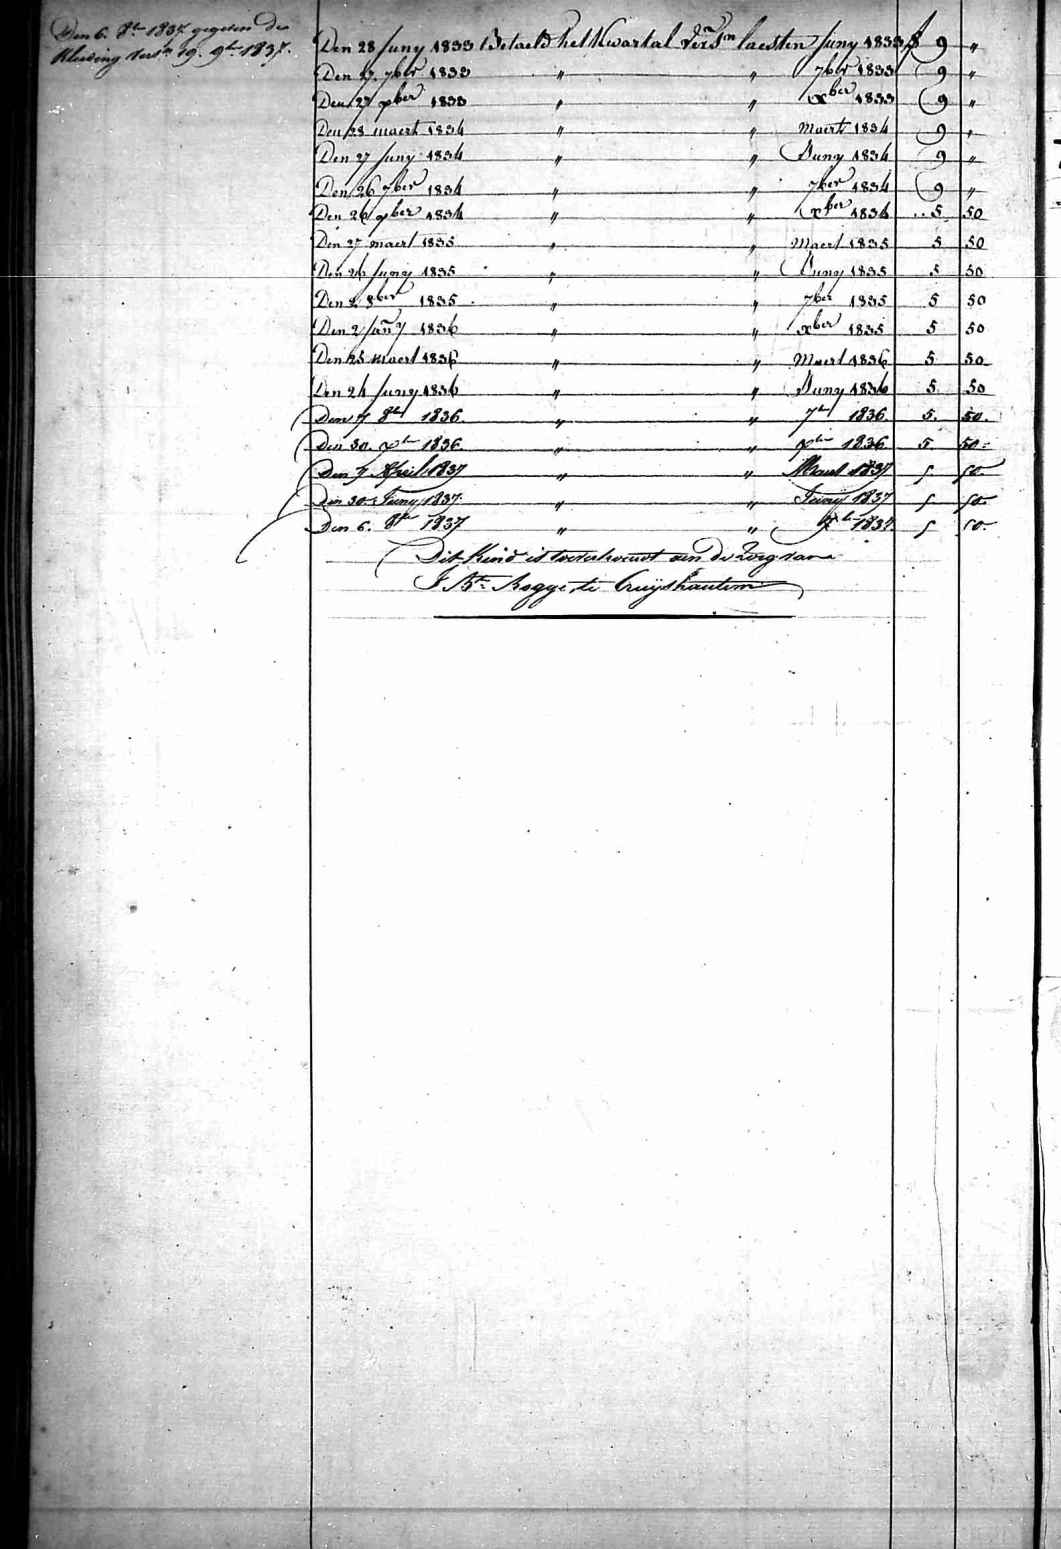 Den 6. 8br 1837 gegeven de
Kleeding 19. 9br 1837.
Den 28 Juny 1833 Betaeld het Kwartal versn laesten Juny 1833 f 9 "
Den 27 7ber 1833 " " 7ber 1833 9 "
Den 27 xber 1833 " " xber 1833 9 "
Den 28 maert 1834 " " Maert 1834 9 "
Den 27 Juny 1834 " " Juny 1834 9 "
Den 26 7ber 1834 " " 7ber 1834 9 "
Den 26 xber 1834 " " xber 1834 5 50
Den 27 maert 1835 " " Maert 1835 5 50
Den 26 Juny 1835 " " Juny 1835 5 50
Den 2 8ber 1835 " " 7ber 1835 5 50
Den 2 Jany 1836 " " xber 1835 5 50
Den 25 maert 1836 " " Maert 1836 5 50
Den 24 Juny 1836 " " Juny 1836 5 50
Den 7 8br 1836. " " 7br 1836. 5. 50.
Den 30. xbr 1836. " " xbr 1836 5 50
Den 7 April 1837 " " Maert 1837 5 50
Den 30 Juny 1837. " " Juny 1837 5 50
Den 6. 8br 1837 " " 7br 1837. 5 50
Dit Kind is toevertrouwt aen de Zorg van
J Bte Rogge te Cruyshautem